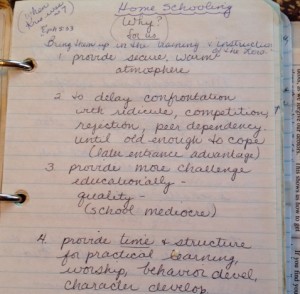 Home Schooling
Why?
for us
Bring them up in the learning & instruction
of the Lord.
1. provide secure, warm
atmosphere
2. to delay confrontation
with ridicule, competition,
rejection, peer dependency
until old enough to cope
(later entrance advantage)
3. provide more challenge
educationally -
quality -
(school mediocre)
4. provide time & structure
for practical learning,
worship, behavior devel,
character develop.